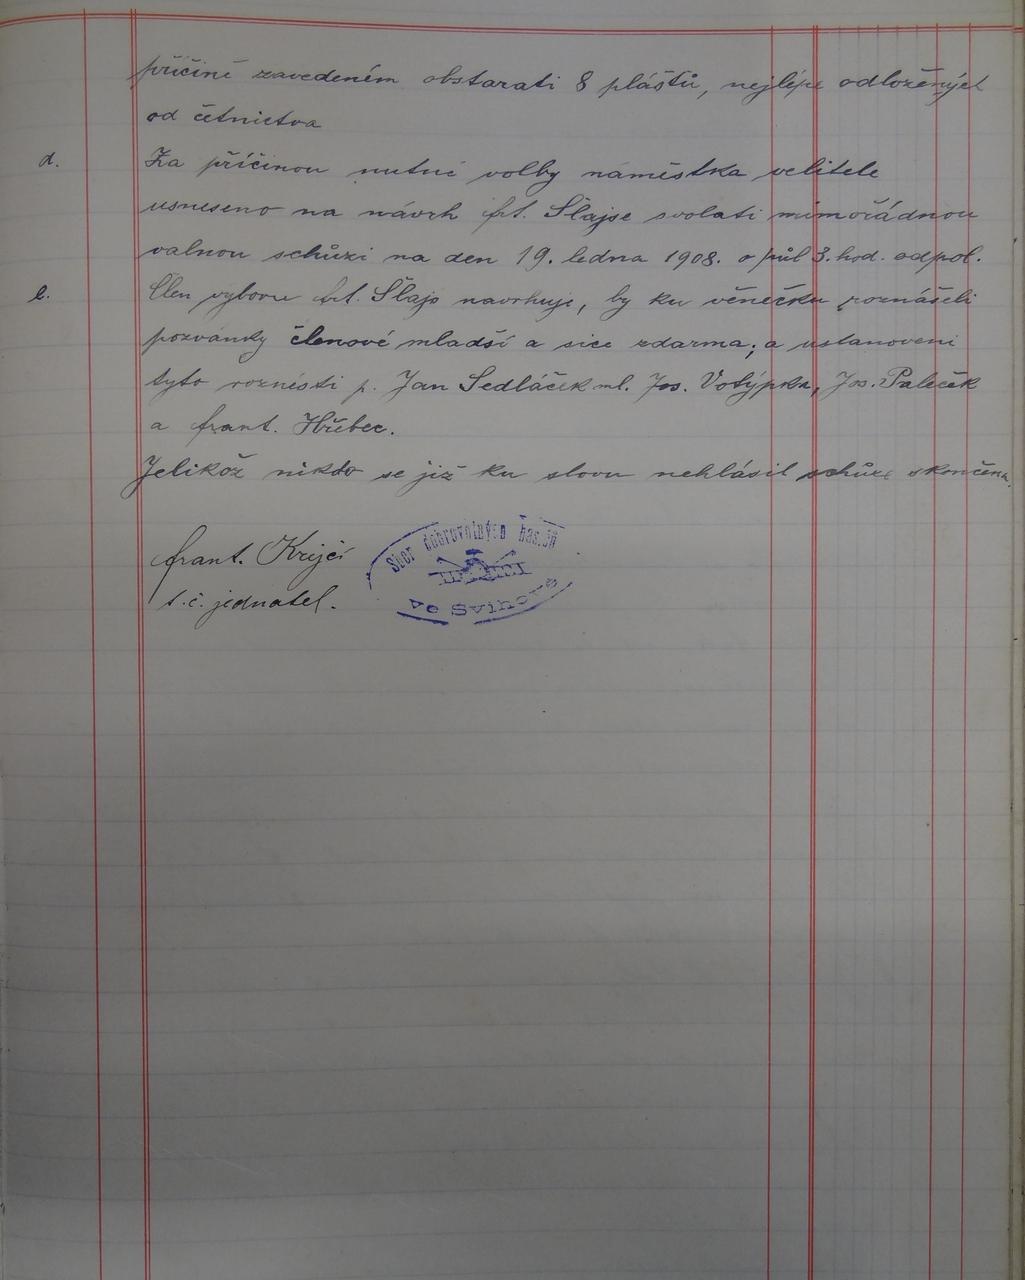 příčině zavedeném obstarati 8 plášťů, nejlépe odložených
od četnictva
d. Za příčinou nutné volby náměstka velitele
usneseno na návrh frt. Šlajse svolati mimořádnou
valnou schůzi na den 19. ledna 1908. o půl 3. hod. odpol.
e. Člen výboru frt. Šlajs navrhuje, by ku věnečku roznášeli
pozvánky členové mladší a sice zdarma; a ustanoveni
tyto roznésti p. Jan Sedláček ml. Jos. Votýpka, Jos. Paleček
a frant. Hřebec.
Jelikož nikdo se již ku slovu nehlásil schůze skončena.
frant. Krejčí
t. č. jednatel.
Sbor dobrovolných hasičů
ve Svinově